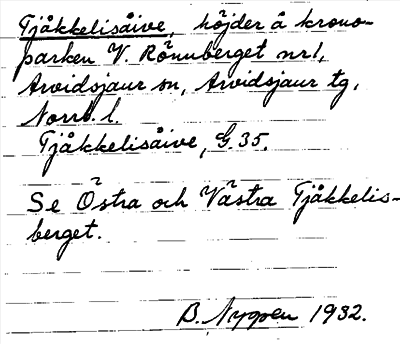 Tjåkkelisåive, höjder å krono-
parken V. Rönnberget nr 1,
Arvidsjaur sn, Arvidsjaur tg,
Norrb. l.
Tjåkkelisåive, G. 35.
Se Östra och Västra Tjåkkelis-
berget.
B. Nygren 1932.